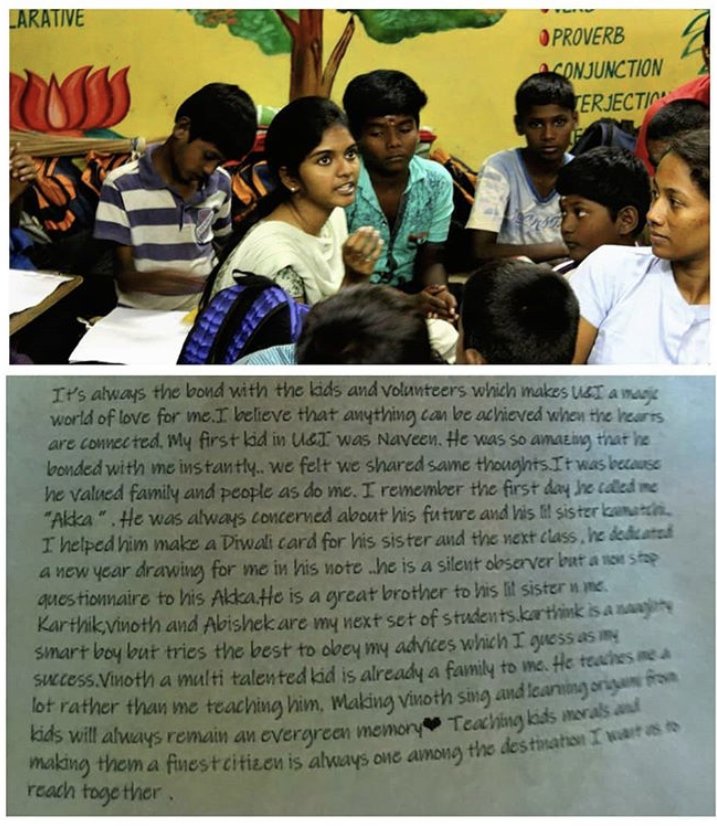 LARATIVE
PROVERB
CONJUNCTION
TERJECTION
It's always the bond with the kids and volunteers which makes U&I a magic
world of love for me.I believe that anything can be achieved when the hearts
are connected. My first kid in U&I was Naveen. He was so amazing that he
bonded with me instantly.. we felt we shared same thoughts.It was because
he valued family and people as do me. I remember the first day he called me
"Akka ". He was always concerned about his future and his lil sister kamatchi.
I helped him make a Diwali card for his sister and the next class, he dedicated
a new year drawing for me in his note ..he is a silent observer but a non stop
questionnaire to his Akka.He is a great brother to his lil sister n me.
Karthik,vinoth and Abishek are my next set of students.karthink is a naughty
smart boy but tries the best to obey my advices which I guess as my
success.Vinoth a multi talented kid is already a family to me. He teaches me a
lot rather than me teaching him. Making vinoth sing and learning origami from
kids will always remain an evergreen memory❤ Teaching kids morals and
making them a finest citizen is always one among the destination I want us to
reach together .